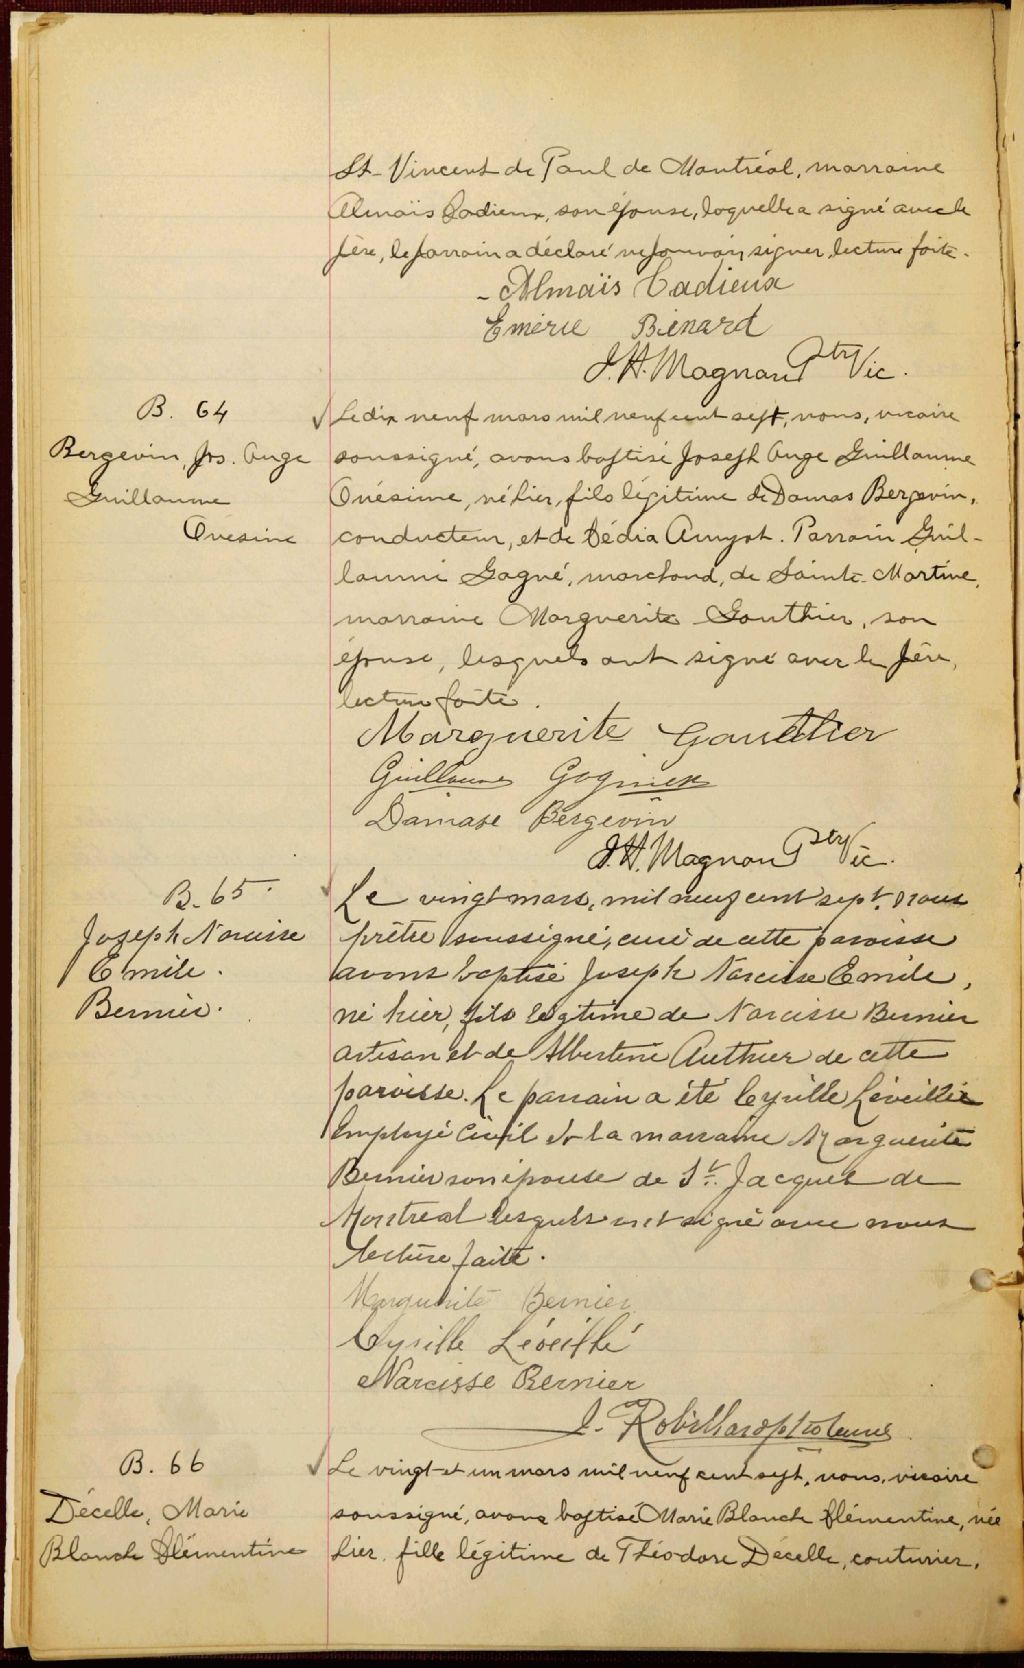 St-Vincent de Paul de Montréal, marraine
Almaïs Cadieux, son épouse, laquelle a signé avec le
père, le parrain a déclaré ne pouvoir signer, lecture faite.
- Almaïs Cadieux
Emérie Bénard
J. H. Magnan Ptre Vic.
B. 64
Bergevin, Jos. Ange
Guillaume
Onésime
Le dix neuf mars mil neuf cent sept, nous, vicaire
soussigné, avons baptisé Joseph Ange Guillaume
Onésime, né hier, fils légitime de Damas Bergevin,
conducteur, et de Dédia Amyot. Parrain Guil-
laume Gagné, marchand, de Sainte-Martine,
marraine Marguerite Gouthier, son
épouse, lesquels ont signé avec le père,
lecture faite.
Marguerite Gauthier
Guillaume
Damase Bergevin
J. H. Magnan Ptre Vic.
B. 65.
Joseph Narcisse
Emile.
Bernier.
Le vingt mars, mil neuf cent sept, nous
prêtre soussigné, curé de cette paroisse
avons baptisé Joseph Narcisse Emile,
né hier, fils légitime de Narcisse Bernier
artisan et de Albertine Authier de cette
paroisse. Le parrain a été Cyrille Léveillée
Employé Civil & la marraine Marguerite
Bernier son épouse de St. Jacques de
Montreal lesquels ont signé avec nous
lecture faite.
Marguerite Bernier
Cyrille Léveillé
Narcisse Bernier
J. Robillard ptre curé
B. 66
Décelle, Marie
Blanche Clémentine
Le vingt-et un mars mil neuf cent sept, nous, vicaire
soussigné, avons baptisé Marie Blanche Clémentine, née
hier, fille légitime de Théodore Décelle, couturier,